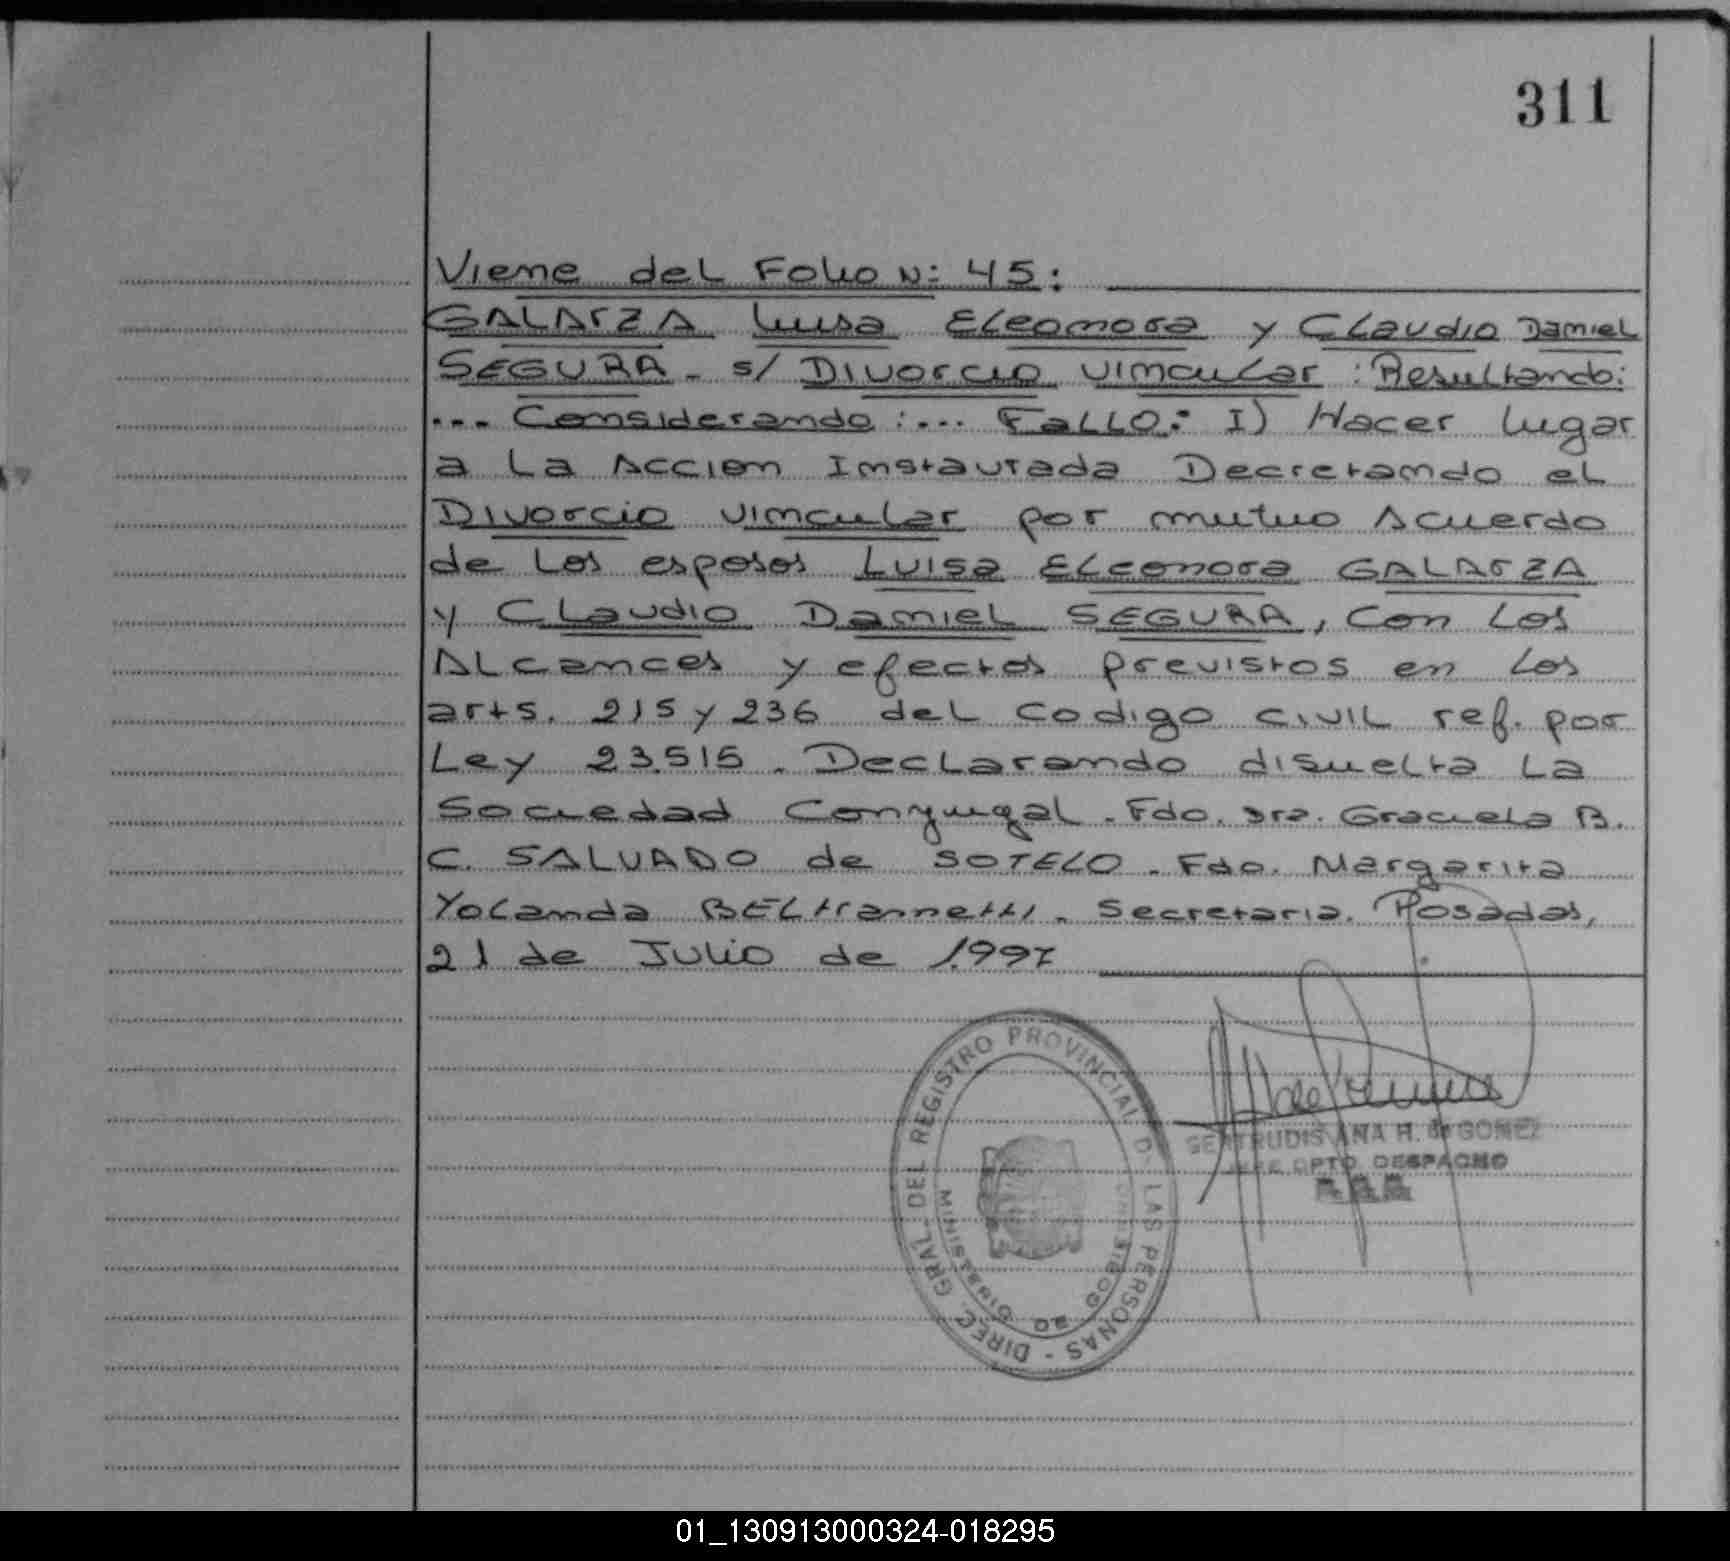 311
Viene del Folio N: 45:
GALArZA Luisa Eleonora y Claudio Daniel
SEGURA - s/ Divorcio vincular : Resultando:
... Considerando : ... FALLO: I) Hacer lugar
a La Accion Instaurada Decretando el
Divorcio vincular por mutuo Acuerdo
de Los esposos Luisa Eleonora GALArZA
y Claudio Daniel SEGURA, Con Los
ALcances y efectos previstos en Los
arts. 215 y 236 del Codigo civil ref. por
Ley 23.515 . Declarando disuelta La
Sociedad Conyugal . Fdo. Dra. Graciela B.
C. SALVADO de SOTELO . Fdo. Margarita
Yolanda BELtrametti . Secretaria. Posadas,
21 de Julio de 1.997
DIREC. GRAL. DEL REGISTRO PROVINCIAL DE LAS PERSONAS -
MINISTERIO DE GOBIERNO
GERTRUDIS ANA H. de GOMEZ
JEFE DPTO. DESPACHO
01_130913000324-018295